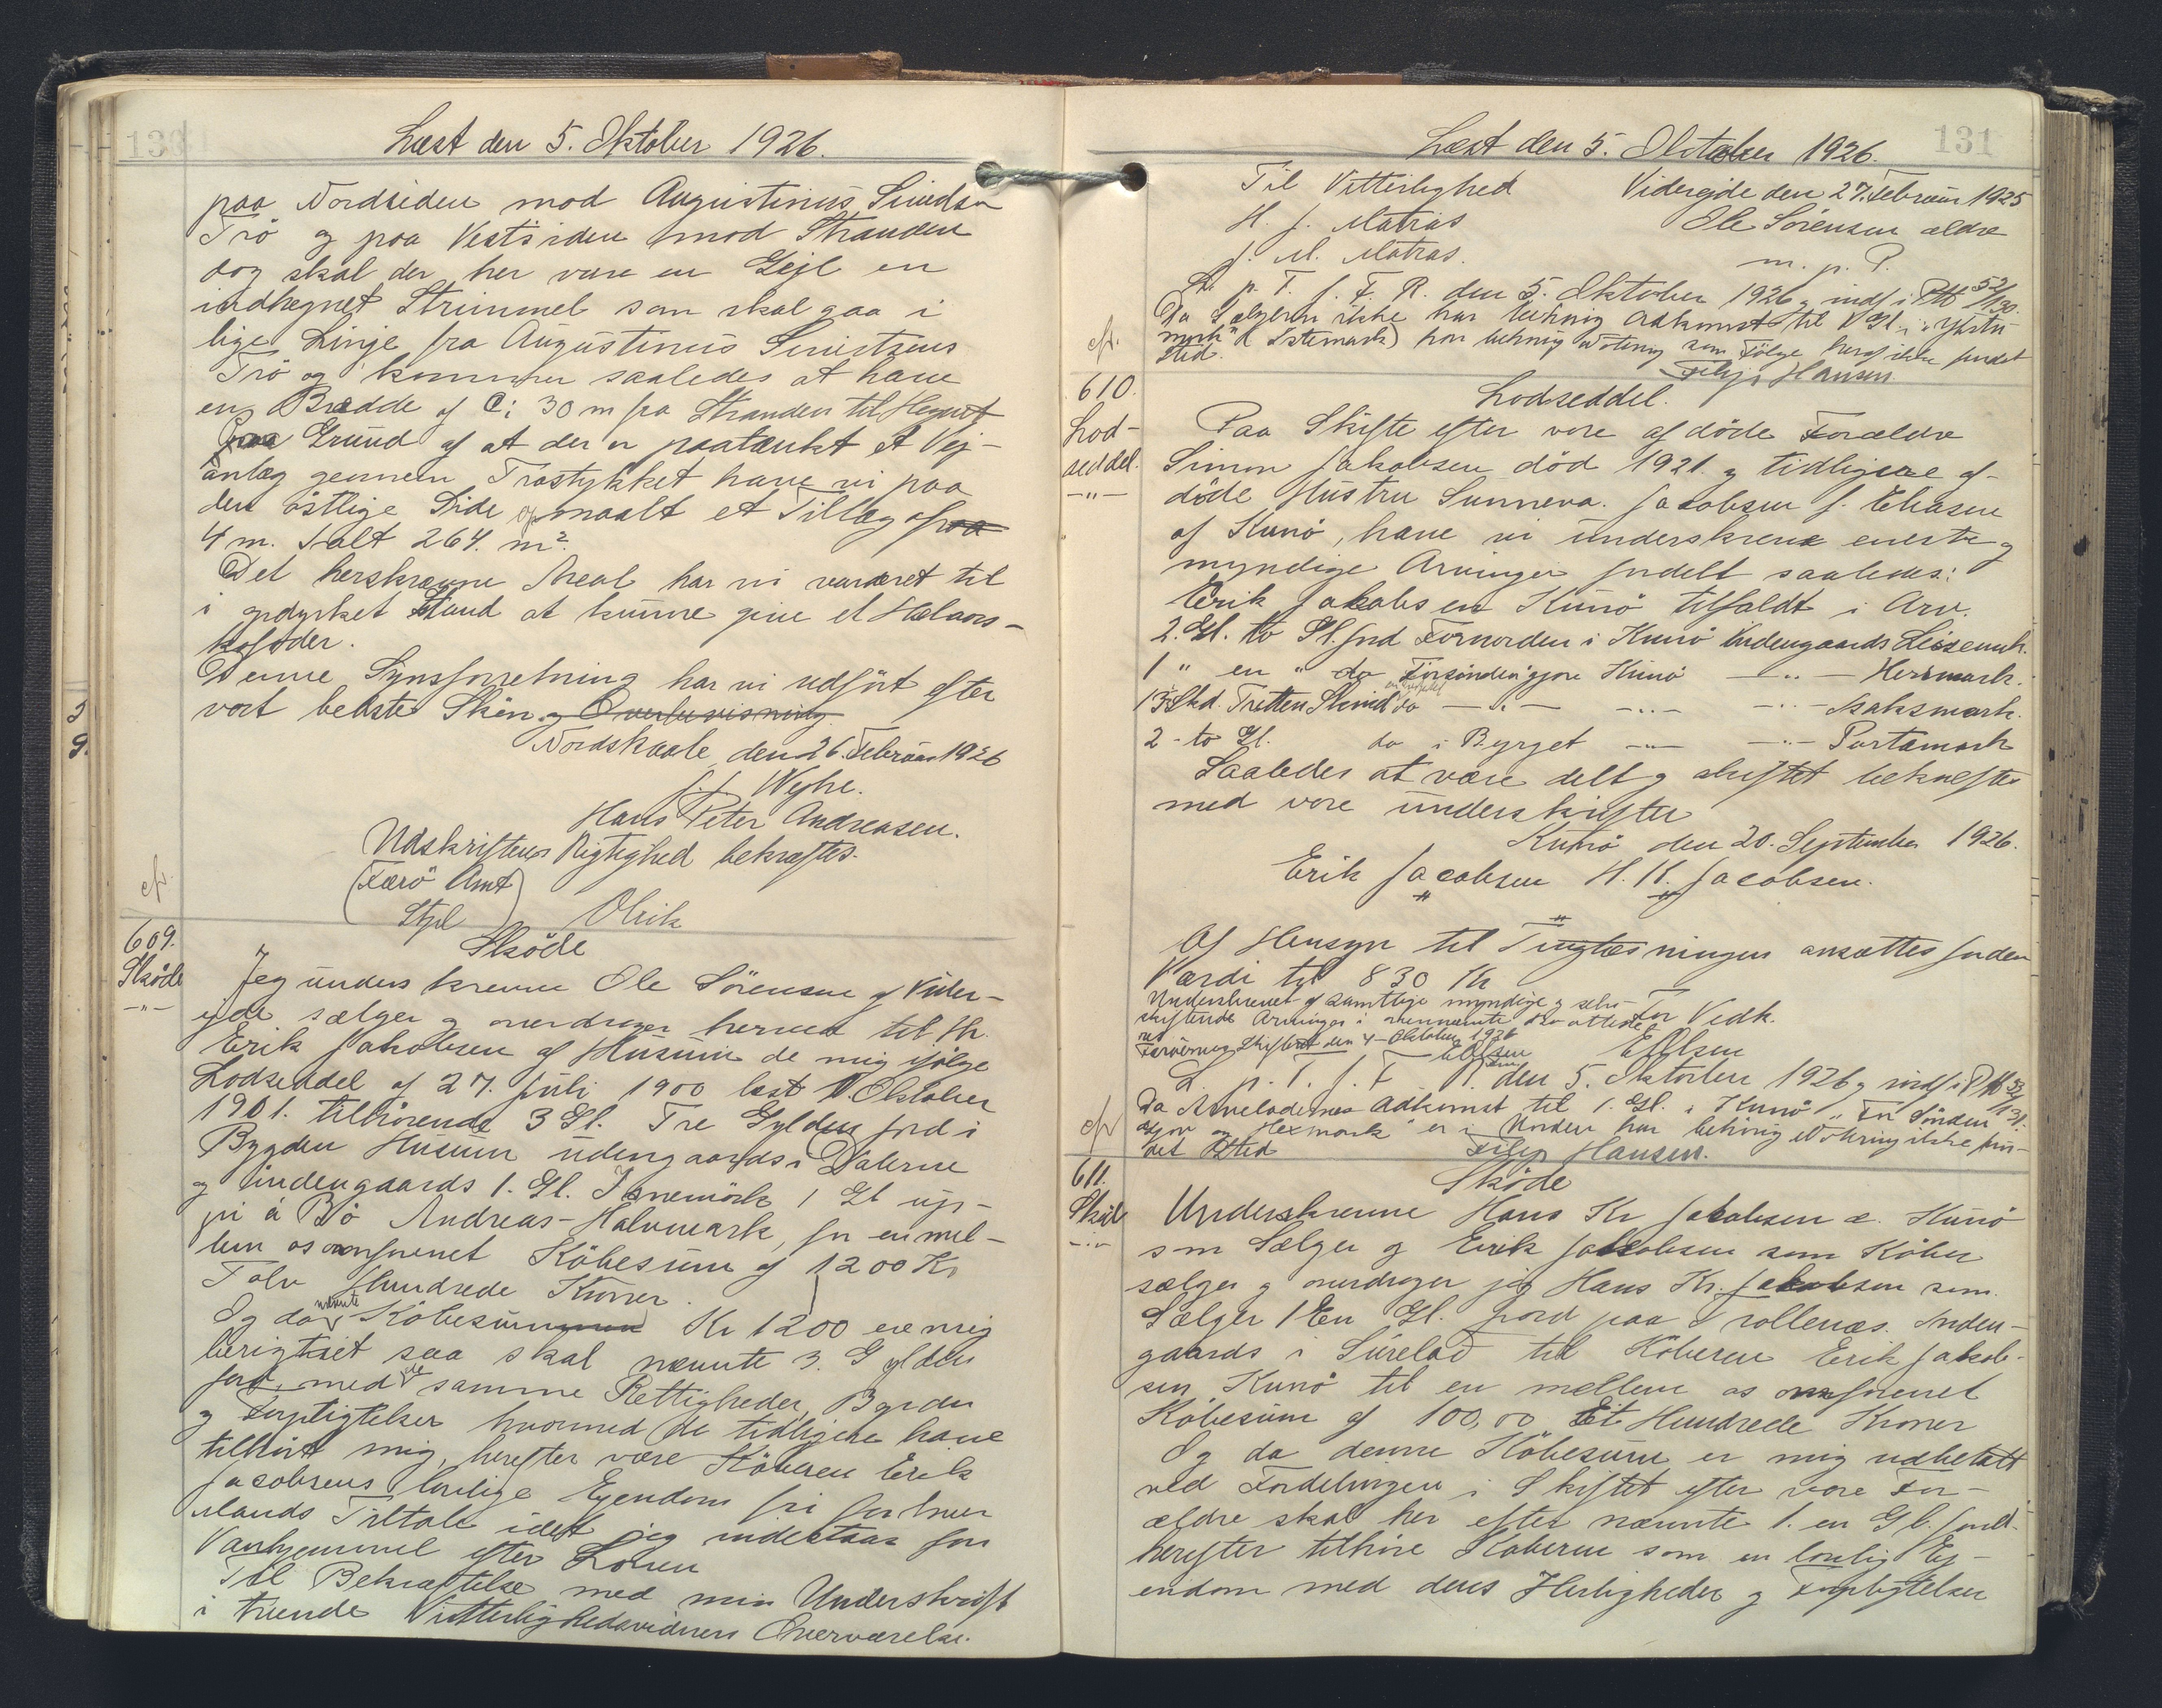 130
Læst den 5. Oktober 1926.
paa Nordsiden mod Augustinus
Trö og paa Vestsiden mod Stranden
dog skal der her være en Gejl en
indhegnet Strimmel som skal gaa i
lige Linje fra Augustinus
Trö og kommer saaledes at have
en Bredde af 30 m fra Stranden til Hegnet
Paa Grund af at der er paatænkt et Vej-
anlæg gennem Tröstykket have vi paa
den östlige Side opmaalt et Tillæg af
4 m. Ialt 264. m².
Det herskrevne Areal har vi vurderet til
i opdyrket Stand at kunne give et Halvaars-
kofoder.
Denne Synsforretning har vi udfört efter
vort bedste Skön og Overbevisning
Nordskaale den 26. Februar 1926
J. J. Wejhe.
Hans Peter Andreasen.
Udskriftens Rigtighed bekræftes.
(Færö Amt)
Stpl Olrik
cfr.
609.
Sköde
Sköde
-"-
Jeg underskrevne Ole Sörensen af Vider-
ejde sælger og overdrager herved til Hr.
Erik Jakobsen af Husum de mig ifölge
Lodseddel af 27. Juli 1900 læst Oktober
1901. tilhörende 3 Gl. Tre Gylden Jord i
Bygden Husum udengaards i Dalerne
og indengaards 1. Gl. 1 Gl up-
pi á Bö Andreas-Halvmark, for en mel-
lem os omforenet Köbesum af 1200 Kr
Tolv Hundrede Kroner.
Og da nævnte Köbesum Kr 1200 ere mig
berigtiget saa skal nævnte 3. Gylden
Jord, med de samme Rettigheder, Byrder
og Forpligtelser hvormed de tidligere have
tilhört mig, herefter være Köberen Erik
Jacobsens lovlige Ejendom fri for hver
Mands Tiltale idet jeg indestaar for
Vanhjemmel efter Loven
Til Bekræftelse med min Underskrift
i tvende Vitterlighedsvidners Overværelse.
131
Læst den 5. Oktober 1926.
Til Vitterlighed Viderejde den 27. Februar 1925
H. J. Matras Ole Sörensen ældre
J. M. Matras. m. p. P.
L. p. T. f. F. R. den 5. Oktober 1926 og indf i 52/130.
Da Sælgeren ikke har behørig Adkomst til 1 Gl. i
mork" har behørig Notering som Fölge heraf ikke fundet
Sted. Filip Hansen
cfr.
610.
Lod-
seddel.
-"-
Lodseddel.
Paa Skifte efter vore afdöde Forældre
Simon Jakobsen död 1921. og tidligere af-
döde Hustru Sunneva. Jacobsen f. Eliasen
af Kunö, have vi underskrevne eneste og
myndige Arvinger fordelt saaledes:
Erik Jakobsen Kunö tilfaldt i Arv.
2. Gl. to Gl. Jord Fornorden i Kunö Indengaards
1 " en " do Forsönden gjore Kunö -"- Herimark.
13 Skd. Tretten Skind do -"- -"- -"- Isaksmark.
2 - to Gl. do i Byrget -"- -"- Purtamark
Saaledes at være delt og skiftet bekræftes
med vore underskrifter
Kunö den 20. September 1926.
Erik Jacobsen H. K. Jacobsen.
Af Hensyn til Tinglæsningen ansættes Jordens
Værdi til 830 Kr
Underskrevet af samtlige myndige og selv-
skiftende Arvinger i nævnte Bo attesteres For Vedk.
Færöernes Skifteret den 4 - Oktober 1926
EOlsen EOlsen
L. p. T. f. F. R. den 5. Oktober 1926 og indf i 52/131.
Da Arveladernes Adkomst til 1. Gl. i Kunö "For Sönden
gjov og Hexmork" er i Norden har behørig Notering ikke fun-
det Sted Filip Hansen.
cfr
611.
Sköde
-"-
Sköde
Underskrevne Hans Kr Jakobsen a. Kunö
som Sælger og Erik Jakobsen som Köber
sælger og overdrager jeg Hans Kr. Jakobsen som
Sælger 1 En Gl. Jord paa Trollenæs. Inden-
gaards i Súrelað til Köberen Erik Jakob-
sen Kunö til en mellem os omforenet
Köbesum af 100,00 Et Hundrede Kroner
Og da denne Köbesum er mig udbetalt
ved Fordelingen i Skiftet efter vore For-
ældre skal her efter nævnte 1. en Gl. Jord
herefter tilhöre Köberen som en lovlig Ej-
endom med dens Herligheder og Forpligtelser